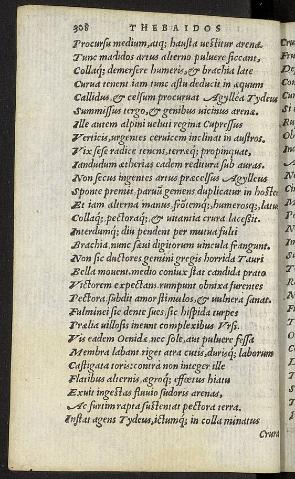 308 THEBAIDOS
Procursu medium, atq; hausta vestitur arena.
Tunc madidos artus alterno puluere siccant,
Collaq; demersere humeris, & brachia late
Curua tenent iam tunc astu deducit in æquum
Callidus, & celsum procuruat Agylléa Tydeus
Summissus tergo, & genibus vicinus arenæ.
Ille autem alpini veluti regina Cupressus
Verticis, urgentes ceruicem inclinat in austros.
Vix sese radice tenens, terræq; propinquat,
Iandudum ætherias eadem reditura sub auras.
Non secus ingentes artus præcelsus Agylleus
Sponte premit, paruũ gemens duplicatur in hostẽ
Et iam alterna manus, frõtemq; humerosq; latus
Collaq; pectoraq; & vitantia crura lacessit.
Interdumq; diu pendent per mutua fulti
Brachia, nunc sæui digitorum vincula frangunt.
Non sic ductores gemini gregis horrida Tauri
Bella mouent. medio coniux stat candida prato
Victorem expectans. rumpunt obnixa furentes
Pectora, subdit amor stimulos, & vulnera sanat.
Fulminei sic dente sues. sic hispida turpes
Prælia villosis ineunt complexibus Vrsi.
Vis eadem Oenidæ. nec sole, aut puluere fessa
Membra labant. riget atra cutis, durisq; laborum
Castigata toris: contra non integer ille
Flatibus alternis, ægroq; effœtus hiatu
Exuit ingestas fluuio sudoris arenas,
Ac furtim rapta sustentat pectora terra.
Instat agens Tydeus, ictumq; in colla minatus
Crura